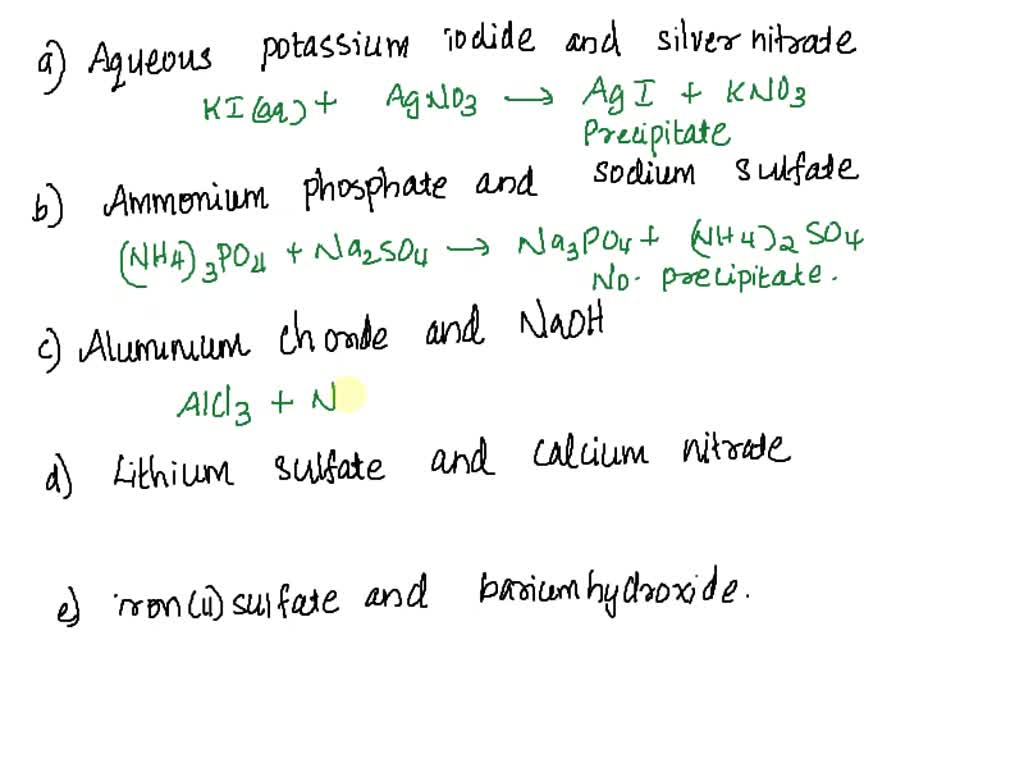 a) Aqueous potassium iodide and silver nitrate
KI (aq) + AgNO3 → AgI + KNO3
Precipitate
b) Ammonium phosphate and sodium sulfate
(NH4)3PO4 + Na2SO4 → Na3PO4 + (NH4)2SO4
No. precipitate.
c) Aluminium choride and NaOH
AlCl3 + N
d) Lithium sulfate and calcium nitrate
e) iron(ii) sulfate and barium hydroxide.